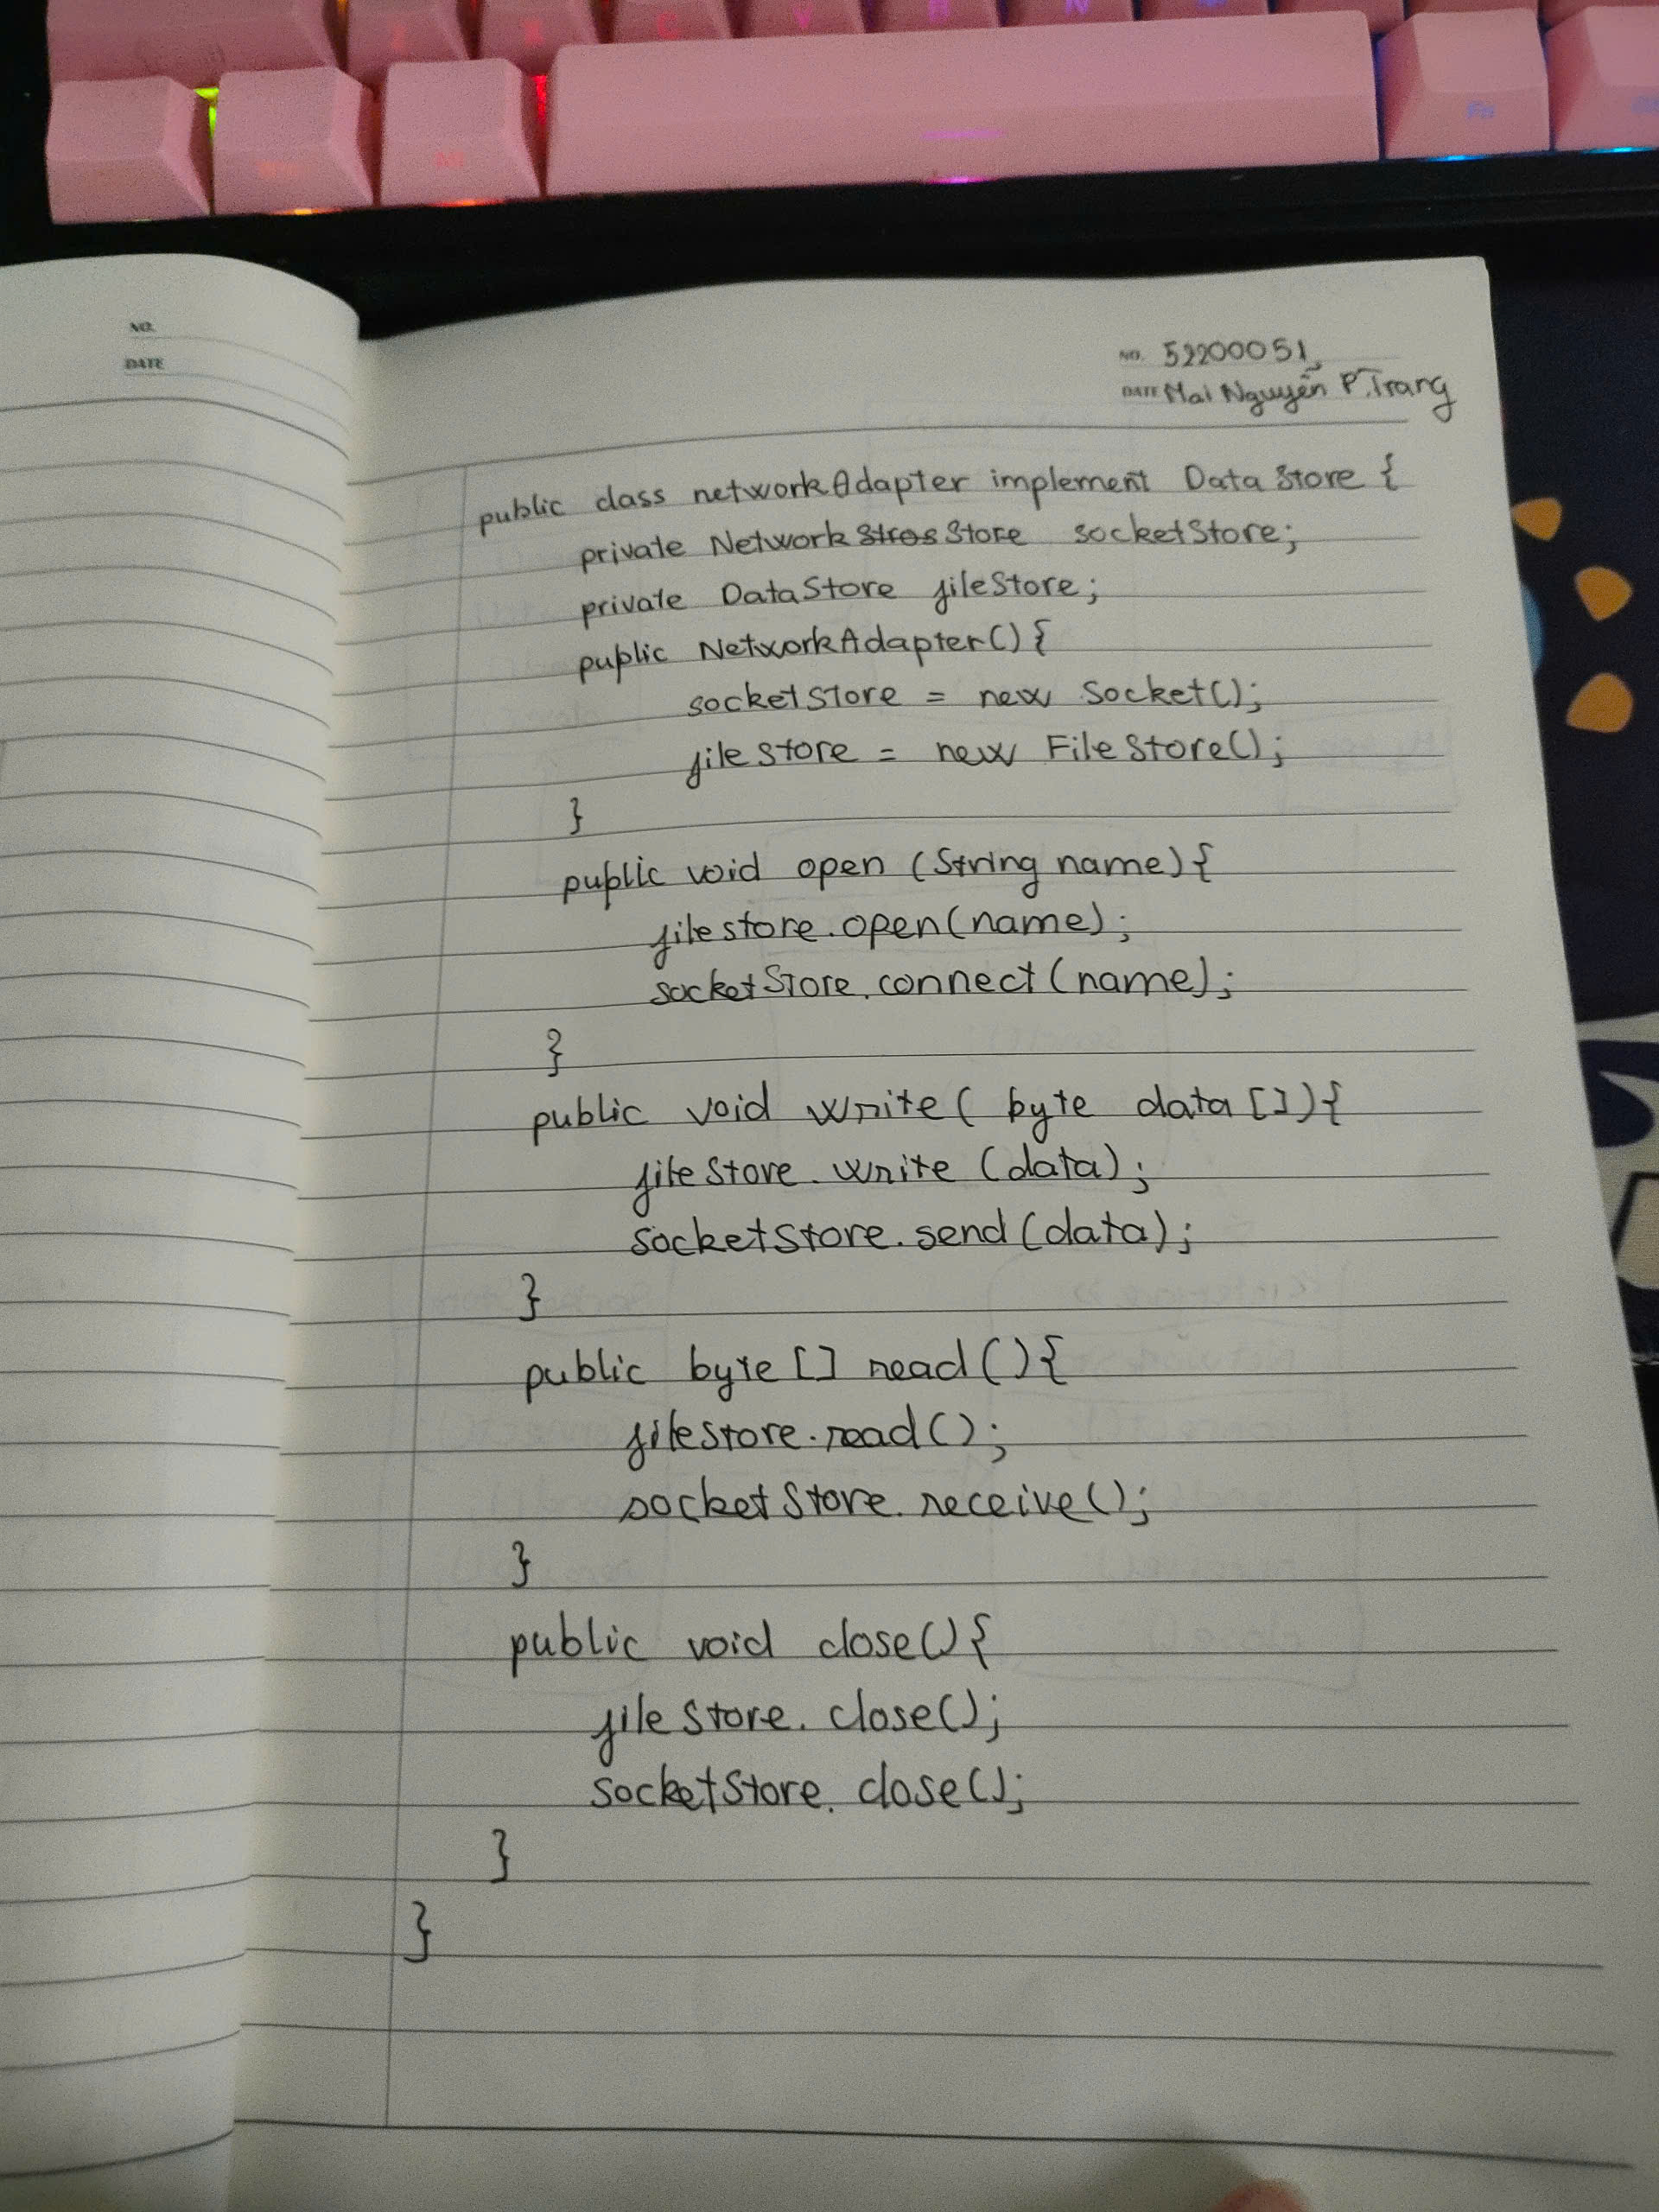 NO.
DATE
NO. 52200051
DATE Mai Nguyễn P.Trang
public class networkAdapter implement DataStore {
private Network Stros Store socketStore;
private DataStore fileStore;
public NetworkAdapter(){
socketStore = new Socket();
fileStore = new FileStore();
}
public void open (String name){
filestore.open(name);
socketStore.connect(name);
}
public void write( byte data []){
fileStore.write (data);
socketStore.send(data);
}
public byte [] read (){
filestore.read();
socketStore.receive();
}
public void close(){
fileStore.close();
socketStore.close();
}
}